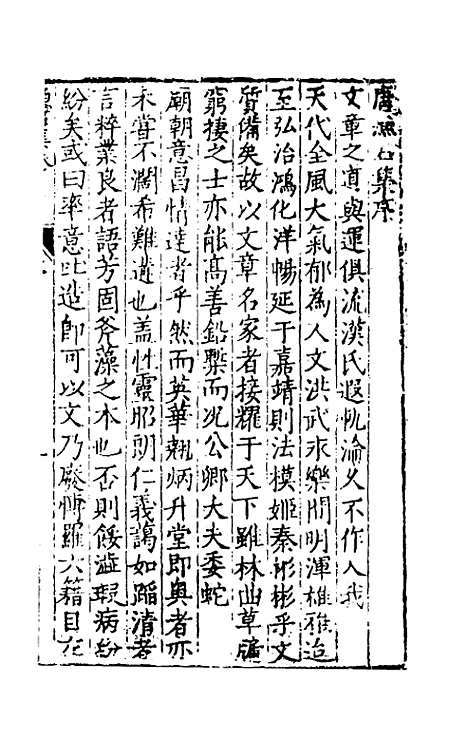 唐漁石集序
文章之道與運俱流漢氏遐軌淪久不作入我
天代全風大氣郁為人文洪武永樂間明渾雄雅迨
至弘治鴻化洋暢延于嘉靖則法模姬秦彬彬乎文
質備矣故以文章名家者接耀于天下雖林幽草牖
窮棲之士亦能高善鉛槧而况公卿大夫委蛇
廟朝意昌情達者乎然而英華炳升堂即奥者亦
未嘗不濶希難遘也盖性靈昭朗仁義藹如蹈清者
言粹業良者語芳固斧藻之木也否則餒澁瑕病紛
紛矣或曰率意比造即可以文乃廢博羅六籍目在